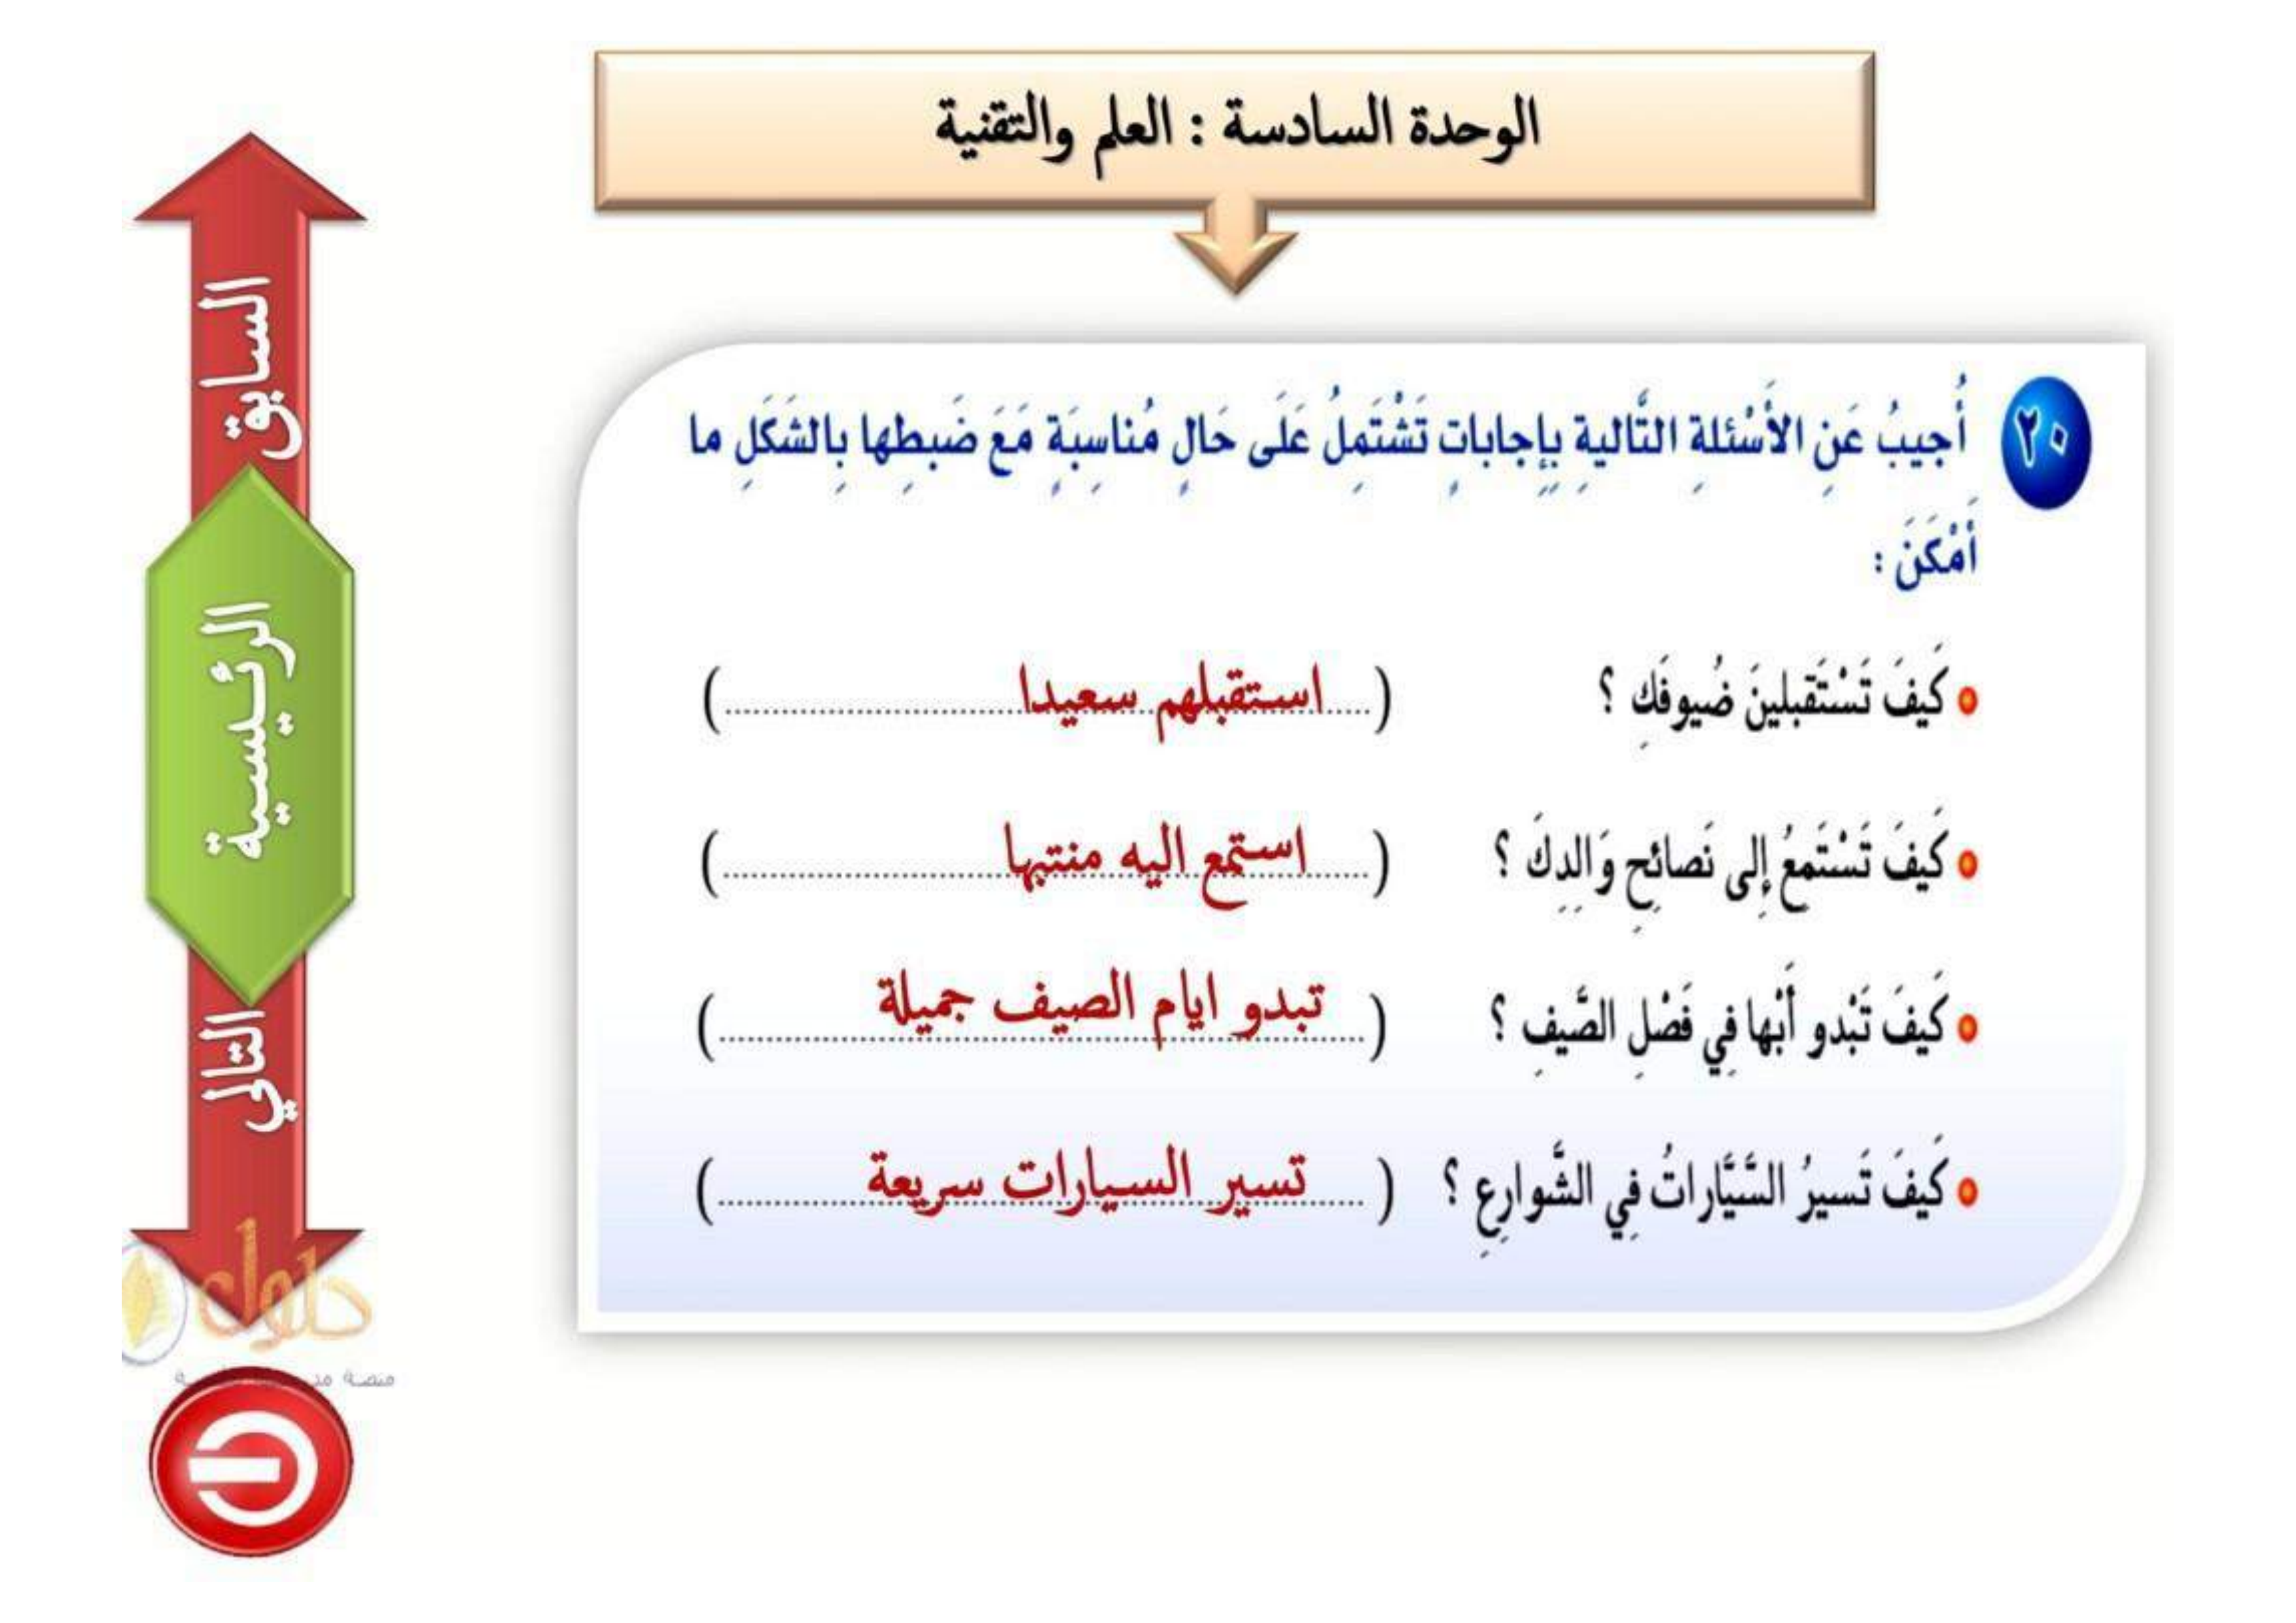 الوحدة السادسة : العلم والتقنية
٢٠ أُجيبُ عَنِ الأَسْئلةِ التَّاليةِ بِإِجاباتٍ تَشْتَمِلُ عَلَى حَالٍ مُناسِبَةٍ مَعَ ضَبطِها بِالشَكَلِ ما
أَمْكَنَ :
كَيفَ تَسْتَقبلينَ ضُيوفَكِ ؟ (استقبلهم سعيدا)
كَيفَ تَسْتَمِعُ إِلى نَصائحِ وَالِدِكَ ؟ (استمع اليه منتبها)
كَيفَ تَبْدو أَبْها فِي فَصْلِ الصَّيفِ ؟ (تبدو ايام الصيف جميلة)
كَيفَ تَسيرُ السَّيَّاراتُ فِي الشَّوارِعِ ؟ (تسير السيارات سريعة)
السابق
الرئيسية
التالي
حلول